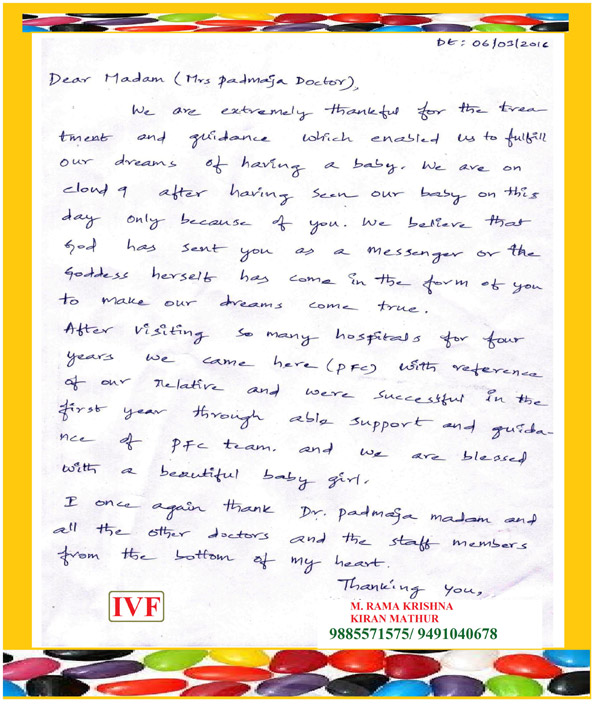 Dt: 06/01/2016
Dear Madam (Mrs Padmaja Doctor),
We are extremely thankful for the trea-
tment and guidance which enabled us to fulfill
our dreams of having a baby. We are on
cloud 9 after having seen our baby on this
day only because of you. We believe that
God has sent you as a messenger or the
Goddess herself has come in the form of you
to make our dreams come true.
After visiting so many hospitals for four
years we came here (PFC) with reference
of our relative and were successful in the
first year through able support and guida-
nce of PFC team. and we are blessed
with a beautiful baby girl.
I once again thank Dr. Padmaja madam and
all the other doctors and the staff members
from the bottom of my heart.
Thanking you,
IVF
M. RAMA KRISHNA
KIRAN MATHUR
9885571575/ 9491040678